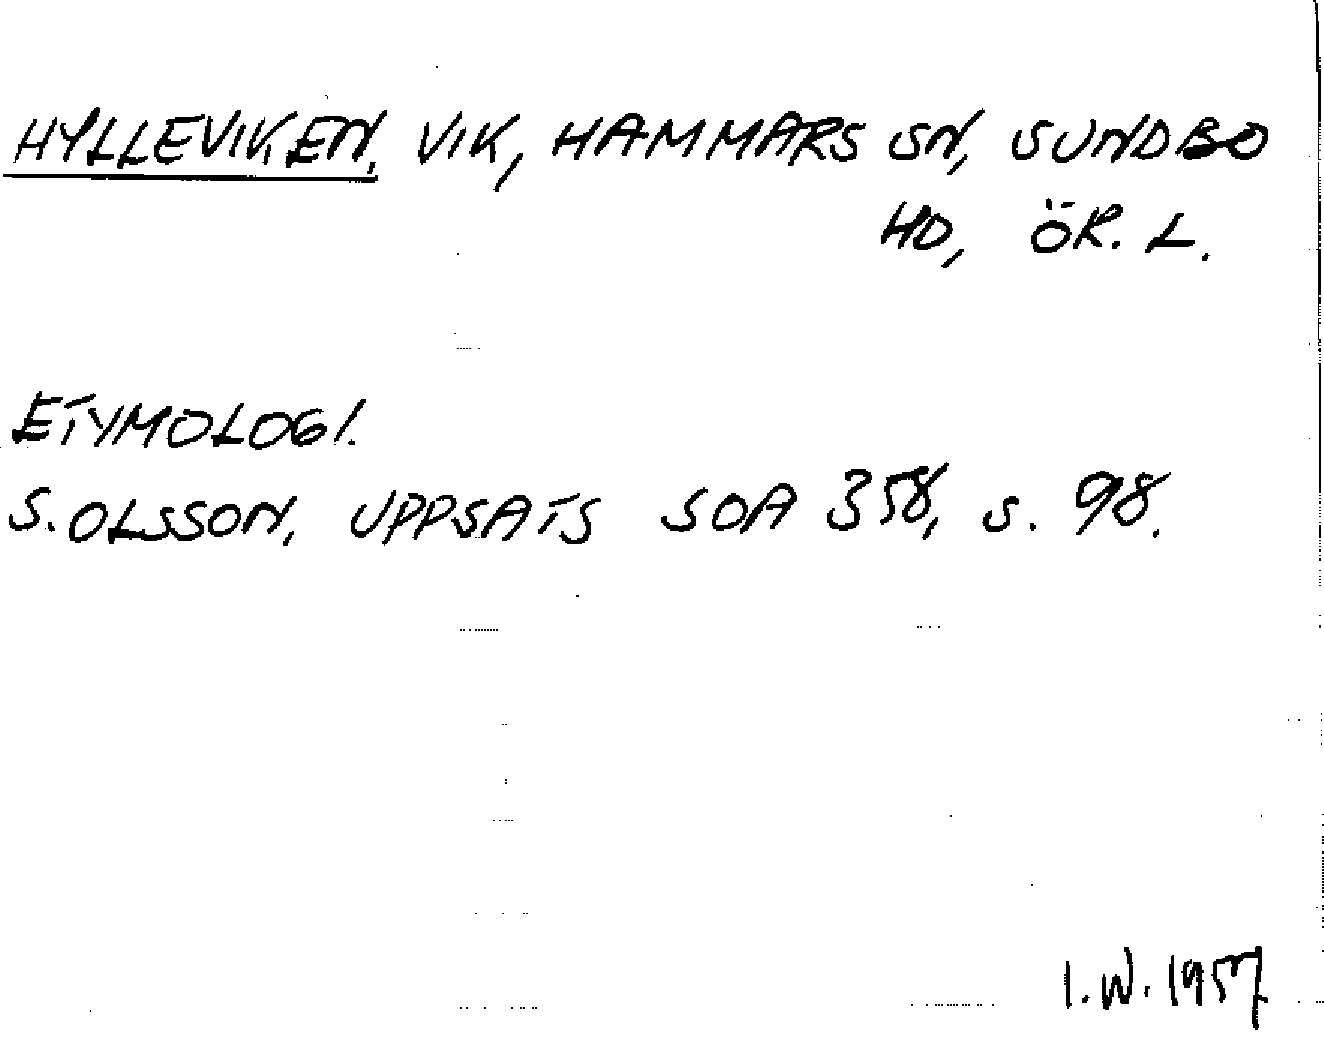 HYLLEVIKEN, VIK, HAMMARS SN, SUNDBO
HD, ÖR. L.
ETYMOLOGI.
S. OLSSON, UPPSATS SOA 358, s. 98.
I.W. 1957